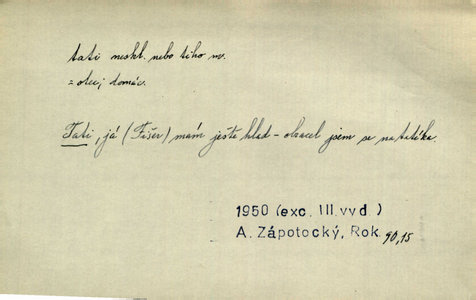 tati neskl. nebo tiho m.
= otec; domác.
Tati, já (Fišer) mám ještě hlad – obracel jsem se na tatíka.
1950 (exc. III. vyd.)
A. Zápotocký, Rok 90,15